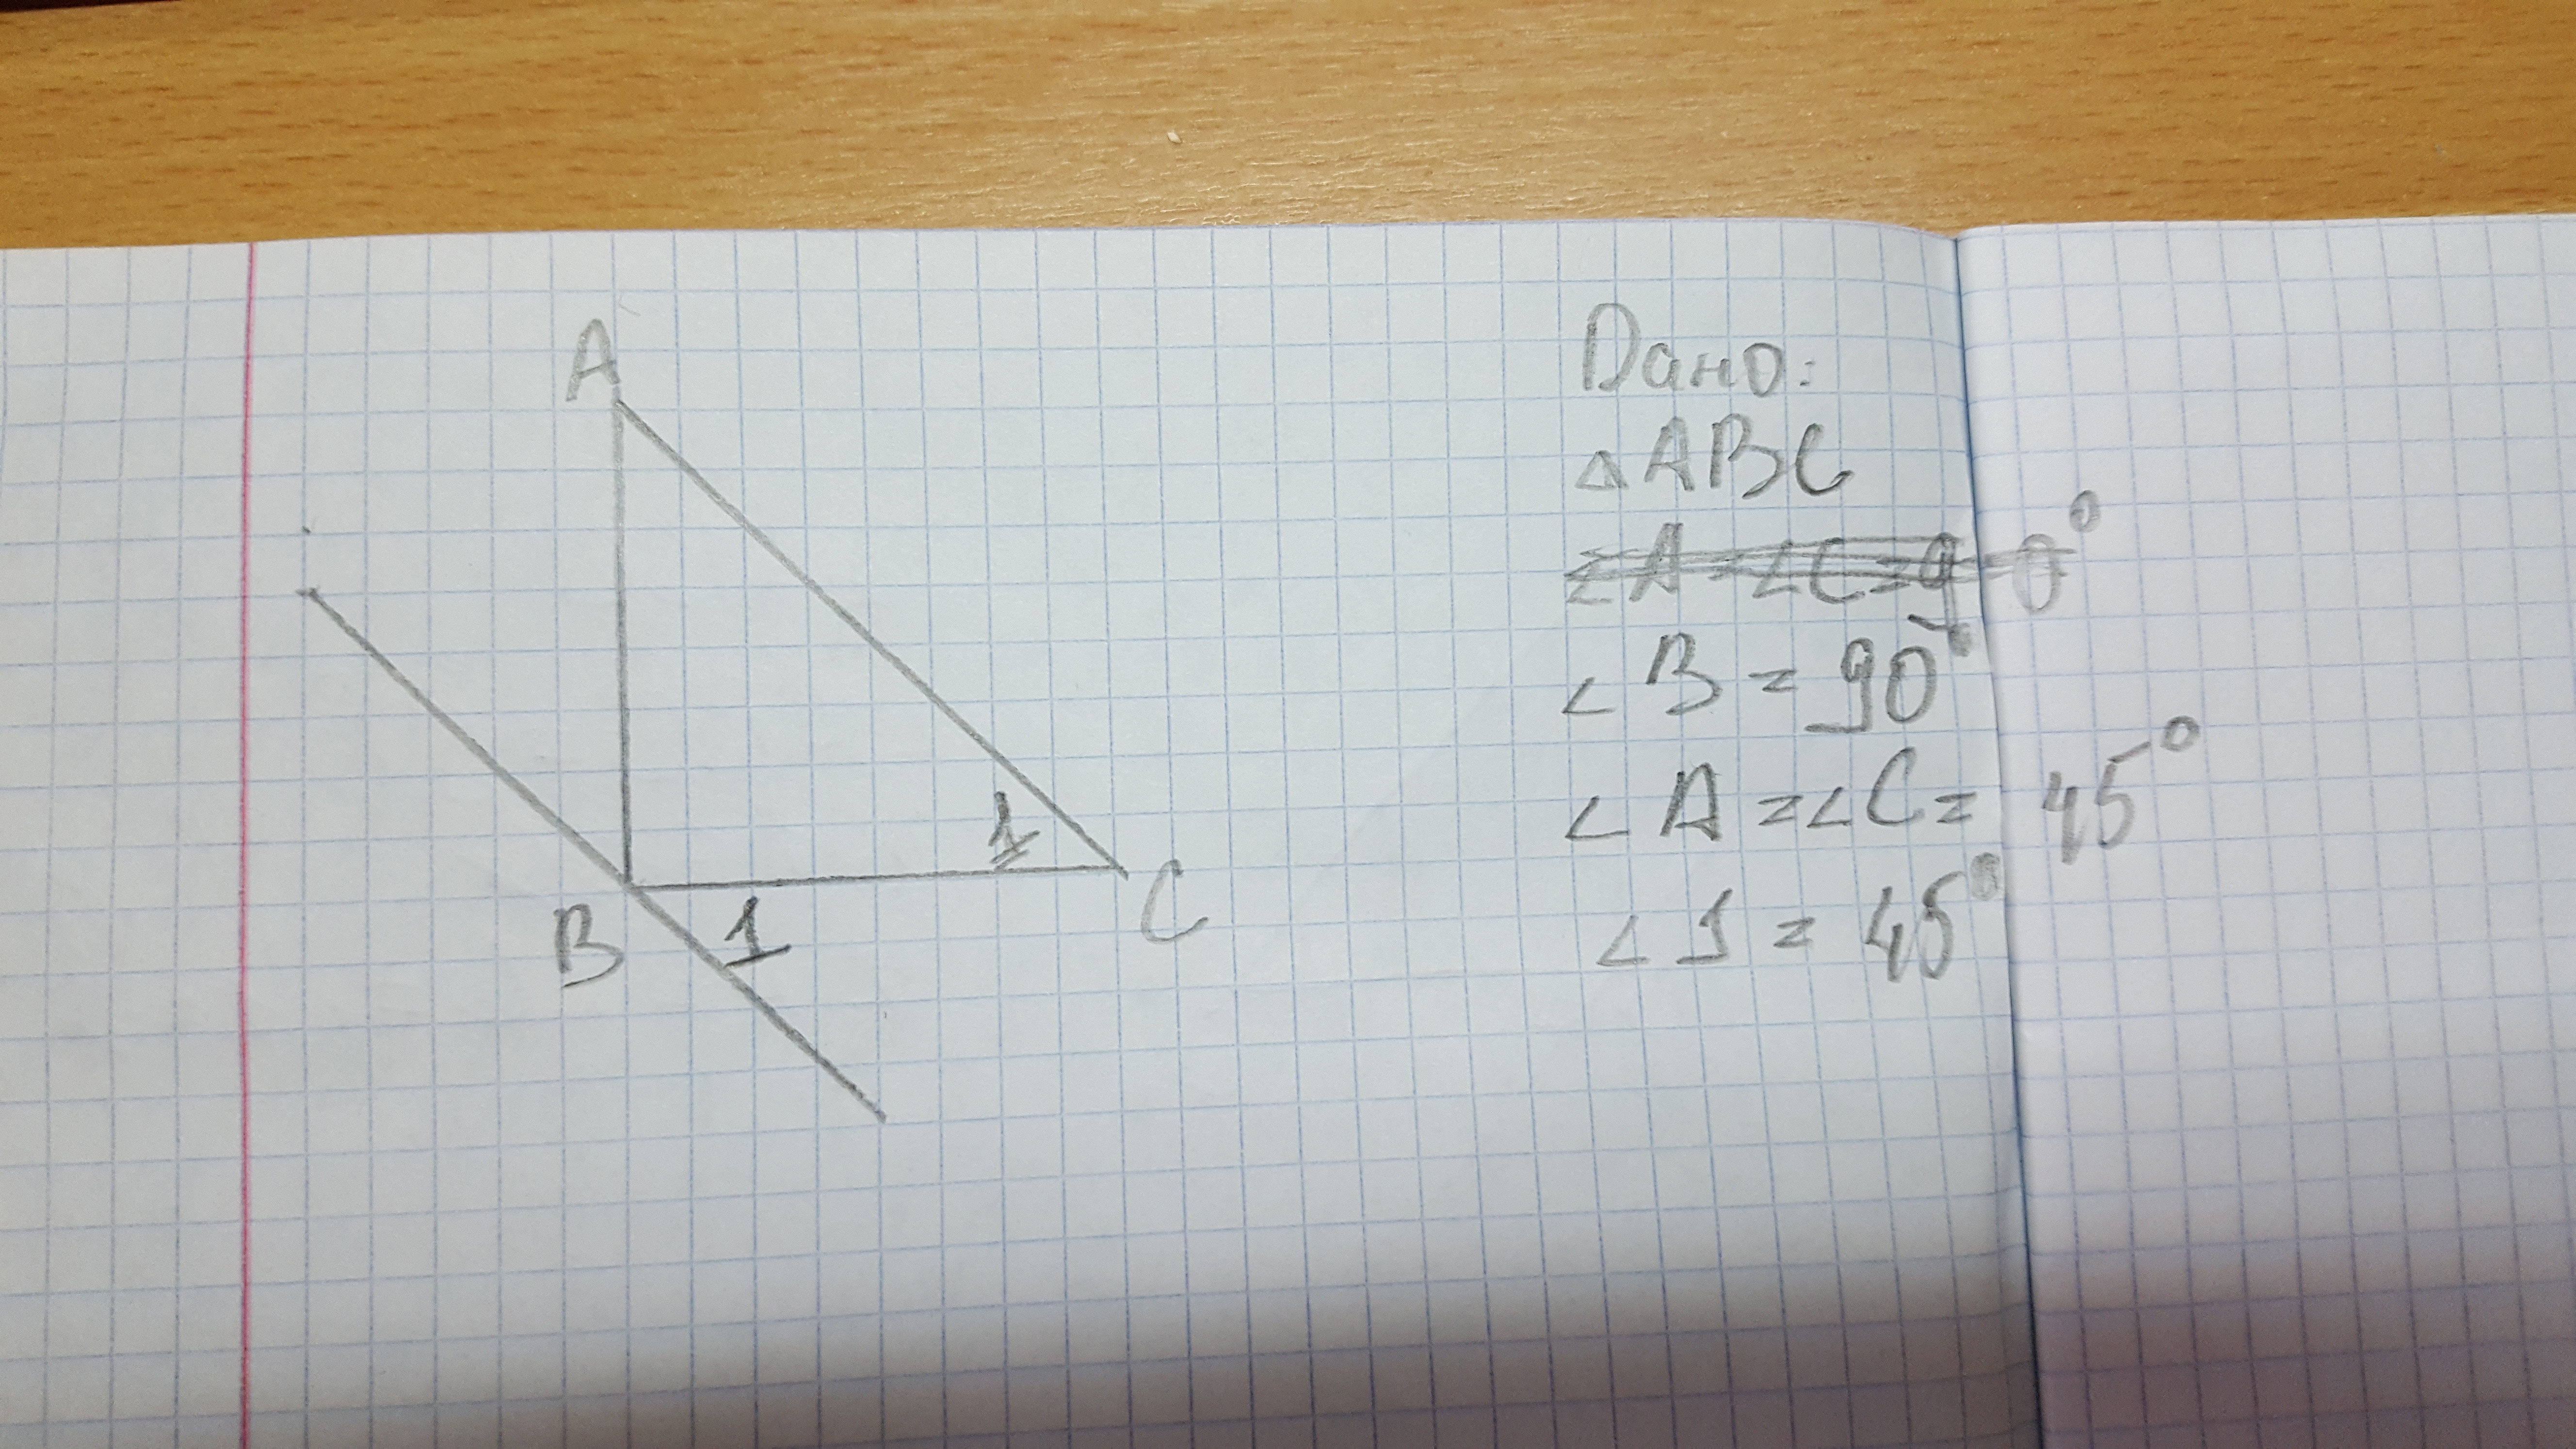 A
1
B
1
C
Дано:
△ABC
∠A=∠C=90°
∠B=90°
∠A=∠C=45°
∠1=45°